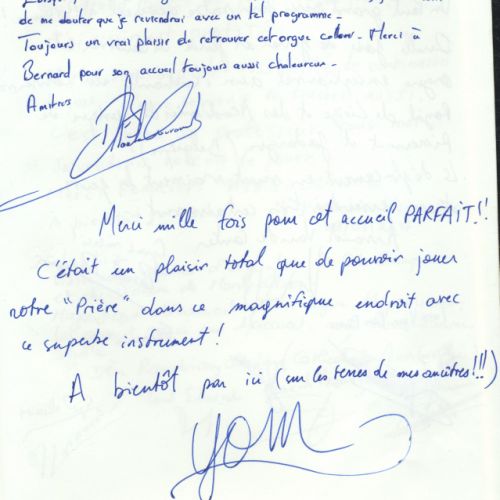 de me douter que je reviendrai avec un tel programme.
Toujours un vrai plaisir de retrouver cet orgue . Merci à
Bernard pour son accueil toujours aussi chaleureux.
Amitiés
Merci mille fois pour cet accueil PARFAIT!!
C'était un plaisir total que de pouvoir jouer
notre "Prière" dans ce magnifique endroit avec
ce superbe instrument!
A bientôt par ici (sur les terres de mes ancêtres!!!)
YOM